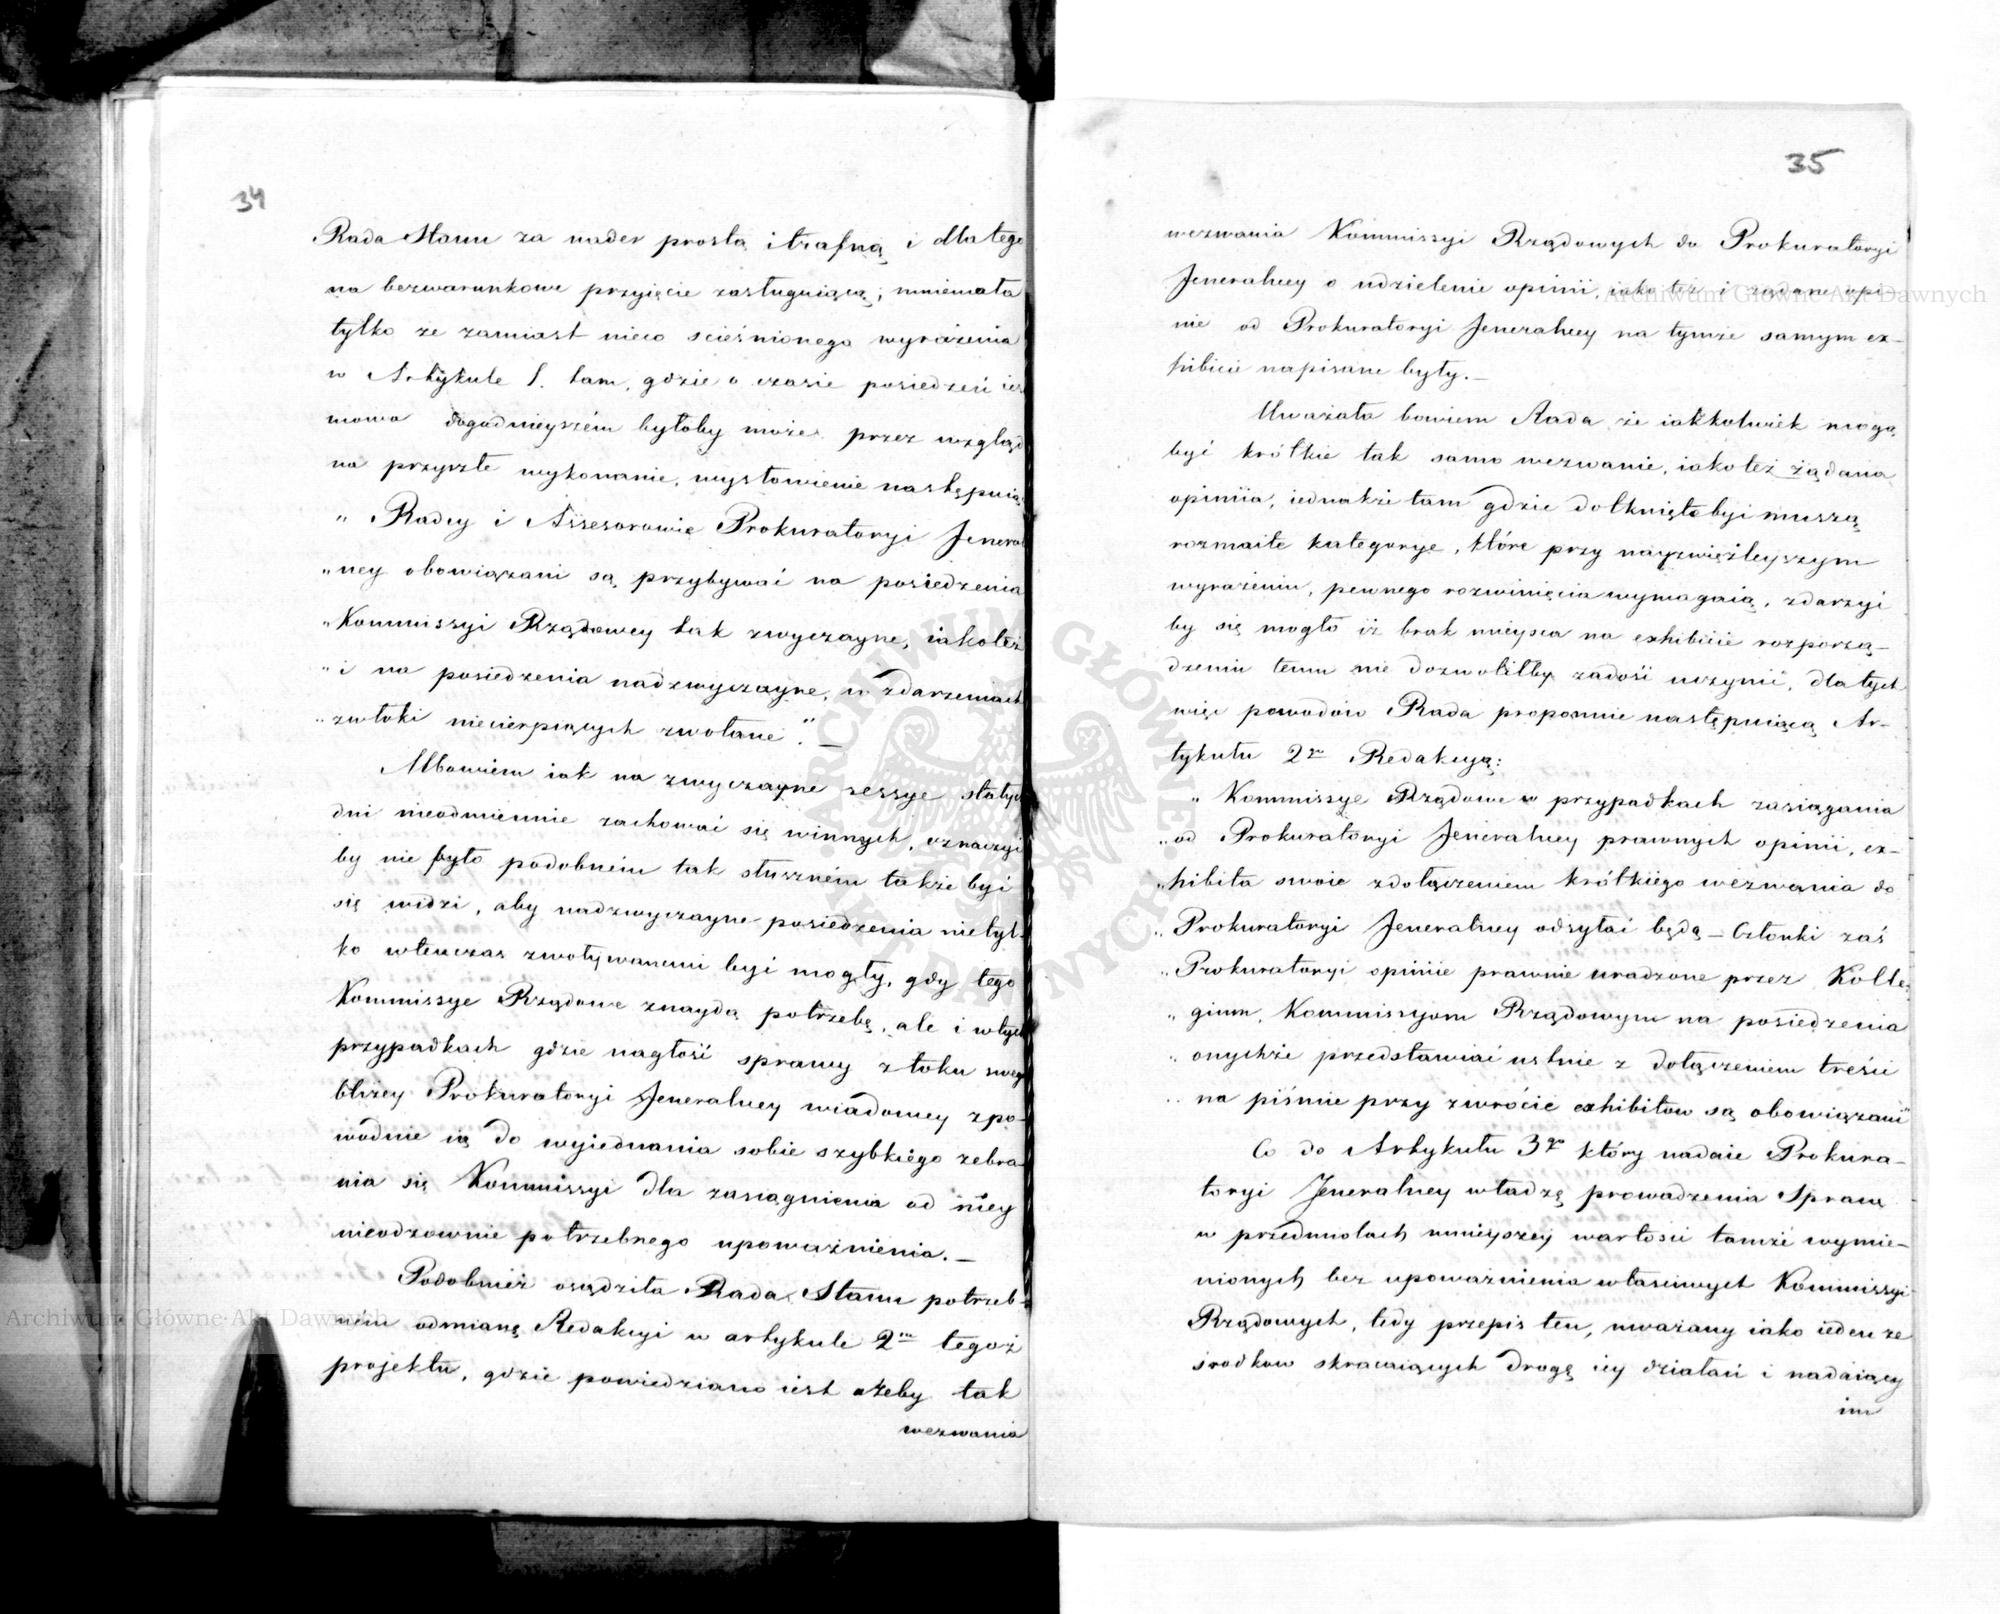 34
Rada Stanu za nader prostą i trafną i dla tego
na bezwarunkowe przyięcie zasługuiącą; mniemała
tylko że zamiast nieco ścieśnionego wyrażenia
w Artykule 1. tam, gdzie o czasie posiedzeń iest
mowa dogodnieyszém byłoby może przez wzgląd
na przyszłe wykonanie, wysłowienie następuią
„ Radcy i Assesorowie Prokuratoryi Jeneral
„ney obowiązani są przybywać na posiedzenia
„Kommissyi Rządowey tak zwyczayne, iakoteż
„i na posiedzenia nadzwyczayne, w zdarzeniach
„zwłoki niecierpiących zwołane". —
Albowiem iak na zwyczayne sessye stałych
dni nieodmiennie zachować się winnych, oznaczyć
by nie było podobném tak słuszném także być
się widzi, aby nadzwyczayne posiedzenia nietyl-
ko wtenczas zwoływanemi być mogły, gdy tego
Kommissye Rządowe znaydą potrzebę, ale i w tych
przypadkach gdzie nagłość sprawy z toku swego
bliżey Prokuratoryi Jeneralney wiadomey spo-
woduie ią do wyiednania sobie szybkiego zebra-
nia się Kommissyi dla zasiągnienia od niey
nieodzownie potrzebnego upoważnienia. —
Podobnież osądziła Rada Stanu potrzeb-
ném odmianę Redakcyi w artykule 2m tegoż
projektu, gdzie powiedziano iest ażeby tak
wezwania
35
wezwania Kommissyi Rządowych do Prokuratoryi
Jeneralney o udzielenie opinii, iako też i żądane opi
nie od Prokuratoryi Jeneralney na tymże samym ex-
hibicie napisane były. —
Uważała bowiem Rada, że iakkolwiek mogą
być krótkie tak samo wezwanie, iakoteż żądana
opiniia, iednakże tam gdzie dotknięte być muszą
rozmaite kategorye, które przy nayzwięźleyszym
wyrażeniu, pewnego rozwinięcia wymagaią, zdarzyć
by się mogło iż brak mieysca na exhibicie rozporzą-
dzeniu temu nie dozwoliłby zadość uczynić, dla tych
więc powodów Rada proponuie następuiącą Ar-
tykułu 2go Redakcyą:
„ Kommissye Rządowe w przypadkach zasiągania
„od Prokuratoryi Jeneralney prawnych opinii, ex-
„hibita swoie z dołączeniem krótkiego wezwania do
„Prokuratoryi Jeneralney odsyłać będą — Członki zaś
„Prokuratoryi opinie prawnie uradzone przez Kolle-
„gium, Kommissyom Rządowym na posiedzenia
„onychże przedstawiać ustnie z dołączeniem treści
„na piśmie przy zwrócie exhibitow są obowiązani"
Co do Artykułu 3go który nadaie Prokura-
toryi Jeneralney władzę prowadzenia Spraw
w przedmiotach mnieyszey wartości tamże wymie-
nionych bez upoważnienia właściwych Kommissyi
Rządowych, tedy przepis ten, uważany iako ieden ze
środkow skracaiących drogę iey działań i nadaiący
im
Archiwum Główne Akt Dawnych
Archiwum Główne Akt Dawnych